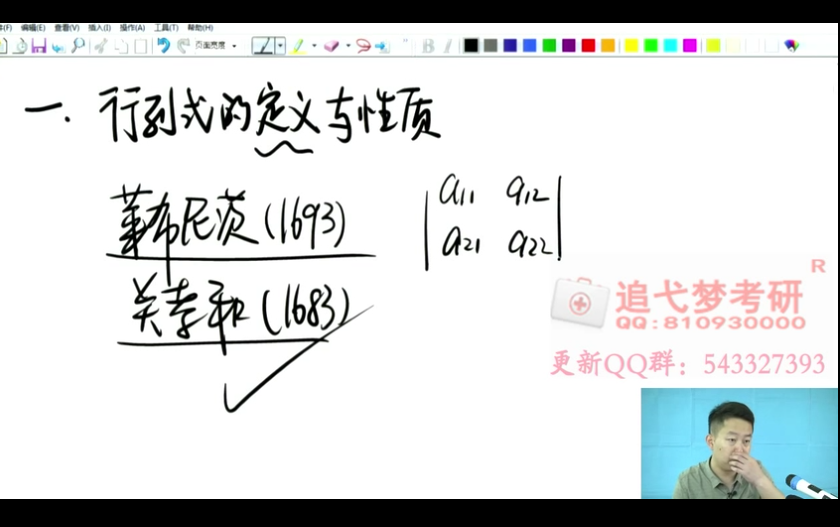 编辑(E) 查看(V) 插入(I) 操作(A) 工具(T) 帮助(H)
页面宽度
一. 行列式的定义与性质
莱布尼茨(1693)
关孝和(1683)
a11 a12
a21 a22
R
追弋梦考研
QQ:810930000
更新QQ群：543327393